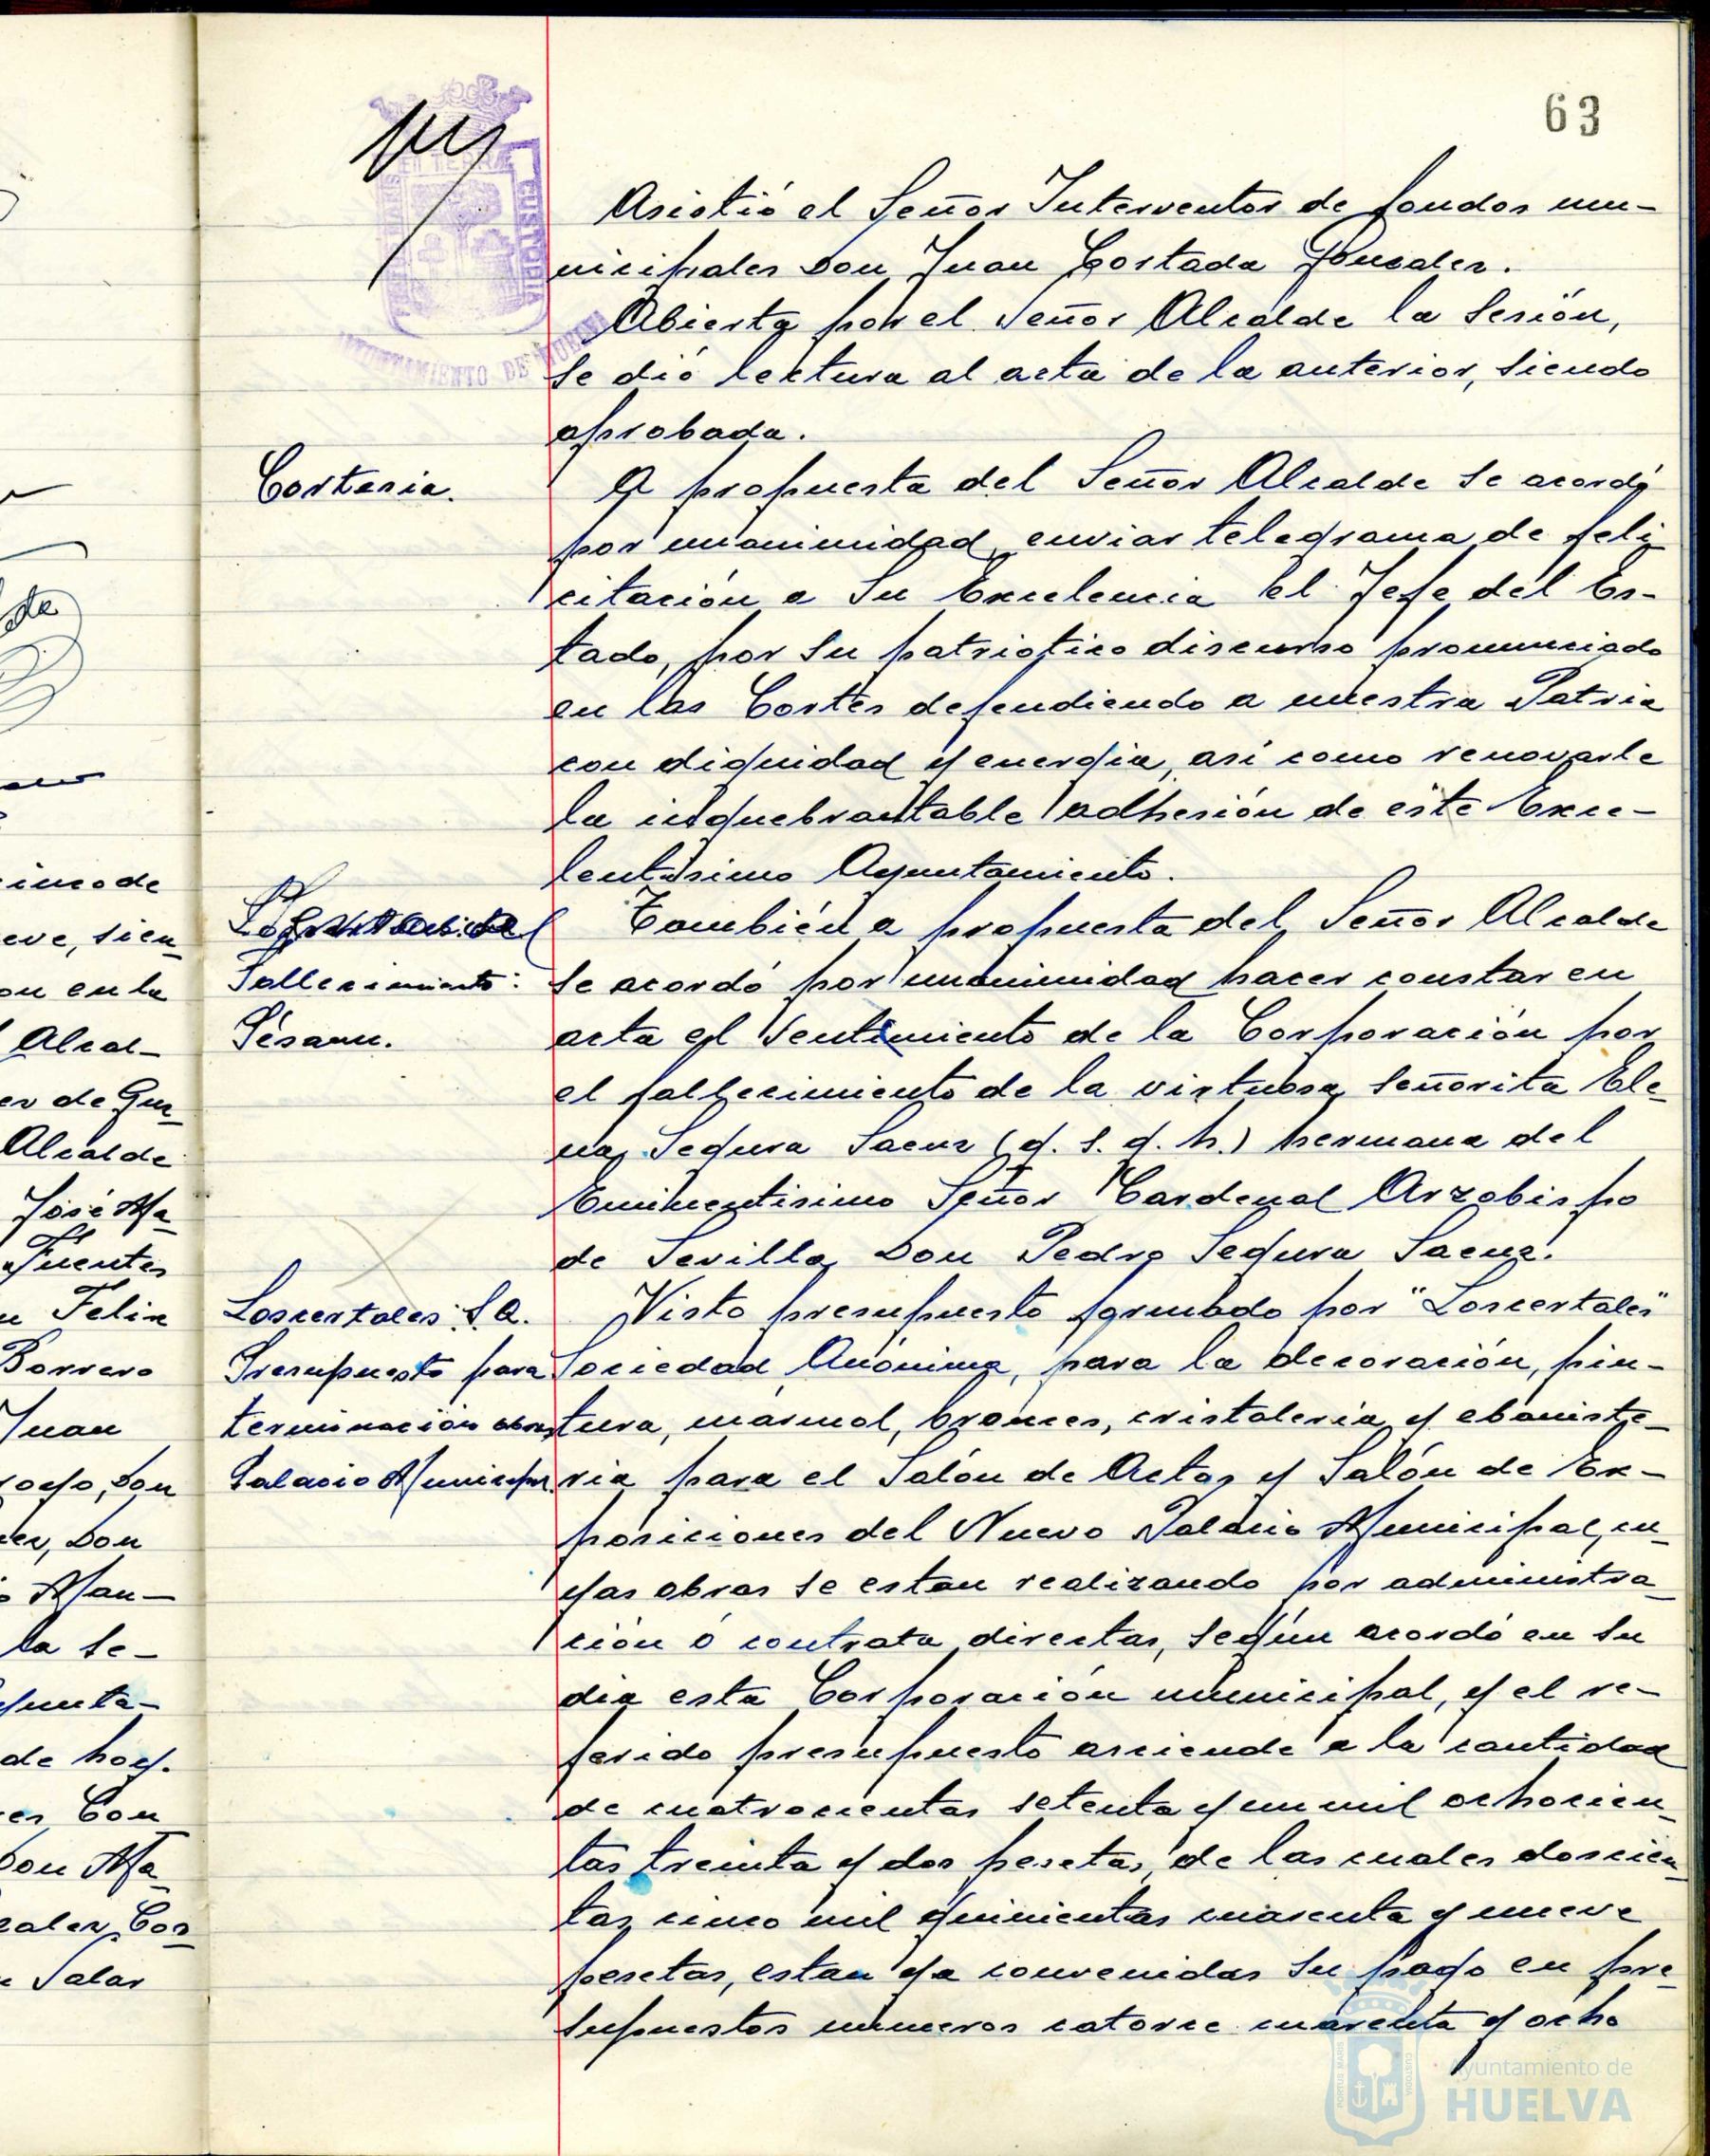 63
Asistió el Señor Interventor de fondos mu-
nicipales Don Juan Cortada Gonzalez.
Abierta por el Señor Alcalde la Sesión,
se dió lectura al acta de la anterior, siendo
aprobada.
Cortesia.
A propuesta del Señor Alcalde se acordó
por unanimidad enviar telegrama de feli
citación a Su Excelencia el Jefe del Es-
tado, por su patriotico discurso pronunciado
en las Cortes defendiendo a nuestra Patria
con dignidad y energia, asi como renovarle
la inquebrantable adhesión de este Exce-
lentisimo Ayuntamiento.
Fallecimiento:
Pésame.
También a propuesta del Señor Alcalde
se acordó por unanimidad hacer constar en
acta el sentimiento de la Corporación por
el fallecimiento de la virtuosa señorita Ele-
na Segura Saenz (q. s. g. h.) hermana del
Eminentisimo Señor Cardenal Arzobispo
de Sevilla Don Pedro Segura Saenz.
Loscertales S.A.
Presupuesto para
terminación obras
Palacio Municipal.
Visto presupuesto formulado por "Loscertales"
Sociedad Anónima, para la decoración, pin-
tura, marmol, bronces, cristaleria y ebaniste-
ria para el Salón de Actos y Salón de Ex-
posiciones del Nuevo Palacio Municipal, cu-
yas obras se estan realizando por administra-
ción ó contrata directas, según acordó en su
dia esta Corporación municipal, y el re-
ferido presupuesto asciende a la cantidad
de cuatrocientas setenta y un mil ochocien-
tas treinta y dos pesetas, de las cuales doscien-
tas cinco mil quinientas cuarenta y nueve
pesetas, estan ya convenidas su pago en pre-
supuestos numeros catorce cuarenta y ocho
de
imo de
eve, sien
on en la
Alcal-
er de Gu
Alcalde
José Ma
Fuentes
n Felix
Borrero
Juan
royo, Don
er, Don
Man-
la Se-
yunta-
de hoy.
es Con
Don Ma
zalez, Cor
Salas
ET TERRAE
CUSTODIA
AYUNTAMIENTO DE HUELVA
PORTUS MARIS
CUSTODIA
Ayuntamiento de
HUELVA